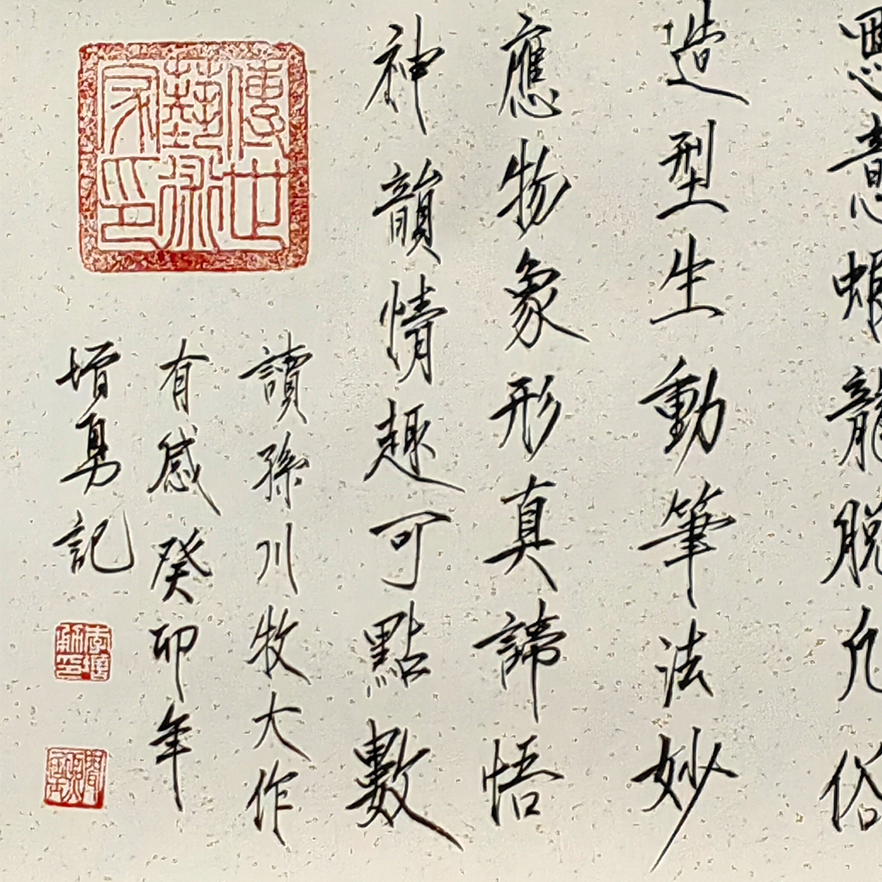 意蝦龍脫凡俗
造型生動筆法妙
應物象形真諦悟
神韻情趣可點數
讀孫川牧大作
有感癸卯年
增勇記
傳世藝術家印